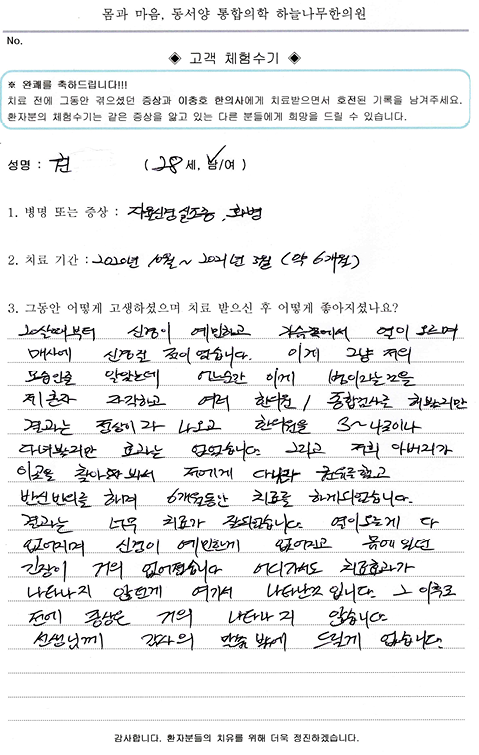 몸과 마음, 동서양 통합의학 하늘나무한의원
No.
◈ 고객 체험수기 ◈
※ 완쾌를 축하드립니다!!!
치료 전에 그동안 겪으셨던 증상과 이충호 한의사에게 치료받으면서 호전된 기록을 남겨주세요.
환자분의 체험수기는 같은 증상을 앓고 있는 다른 분들에게 희망을 드릴 수 있습니다.
성명 : 권 ( 28 세, 남/여 )
1. 병명 또는 증상 : 자율신경실조증, 화병
2. 치료 기간 : 2020년 10월 ~ 2021년 3월 (약 6개월)
3. 그동안 어떻게 고생하셨으며 치료 받으신 후 어떻게 좋아지셨나요?
20살때부터 신경이 예민하고 가슴쪽에서 열이 오르며
매사에 신경질 적이 였습니다. 이게 그냥 저의
모습인줄 알았는데 어느순간 이게 병이라는것을
저 혼자 자각하고 여러 한의원 / 종합검사를 해봤지만
결과는 정상이라 나오고 한의원을 3~4군데나
다녀봤지만 효과는 없었습니다. 그리고 저희 아버지가
이곳을 찾아 봐서 저에게 다녀라 권유를했고
반신반의를 하며 6개월동안 치료를 하게되었습니다.
결과는 너무 치료가 잘되었습니다. 열이오르는게 다
없어지며 신경이 예민한게 없어지고 몸에 있던
긴장이 거의 없어졌습니다 어디가서도 치료효과가
나타나지 않던게 여기서 나타난것 입니다. 그 이후로
전에 증상은 거의 나타나지 않습니다.
선생님께 감사의 말씀 밖에 드릴게 없습니다.
감사합니다. 환자분들의 치유를 위해 더욱 정진하겠습니다.